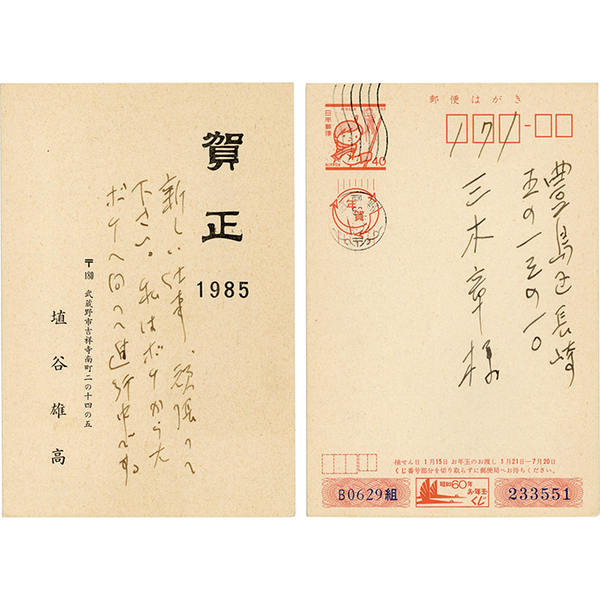 賀正
1985
新しい仕事、頑張って
下さい。私はボケから大
ボケへ向って進行中です。
〒180 武蔵野市吉祥寺南町二の十四の五
埴谷雄高
郵便はがき
171
日本郵便
NIPPON
40
年賀
豊島区長崎
五の一三の一〇
三木章様
抽せん日 1月15日 お年玉のお渡し 1月21日―7月20日
くじ番号部分を切り取らずに郵便局へお持ちください。
B0629組
昭和60年
お年玉
233551